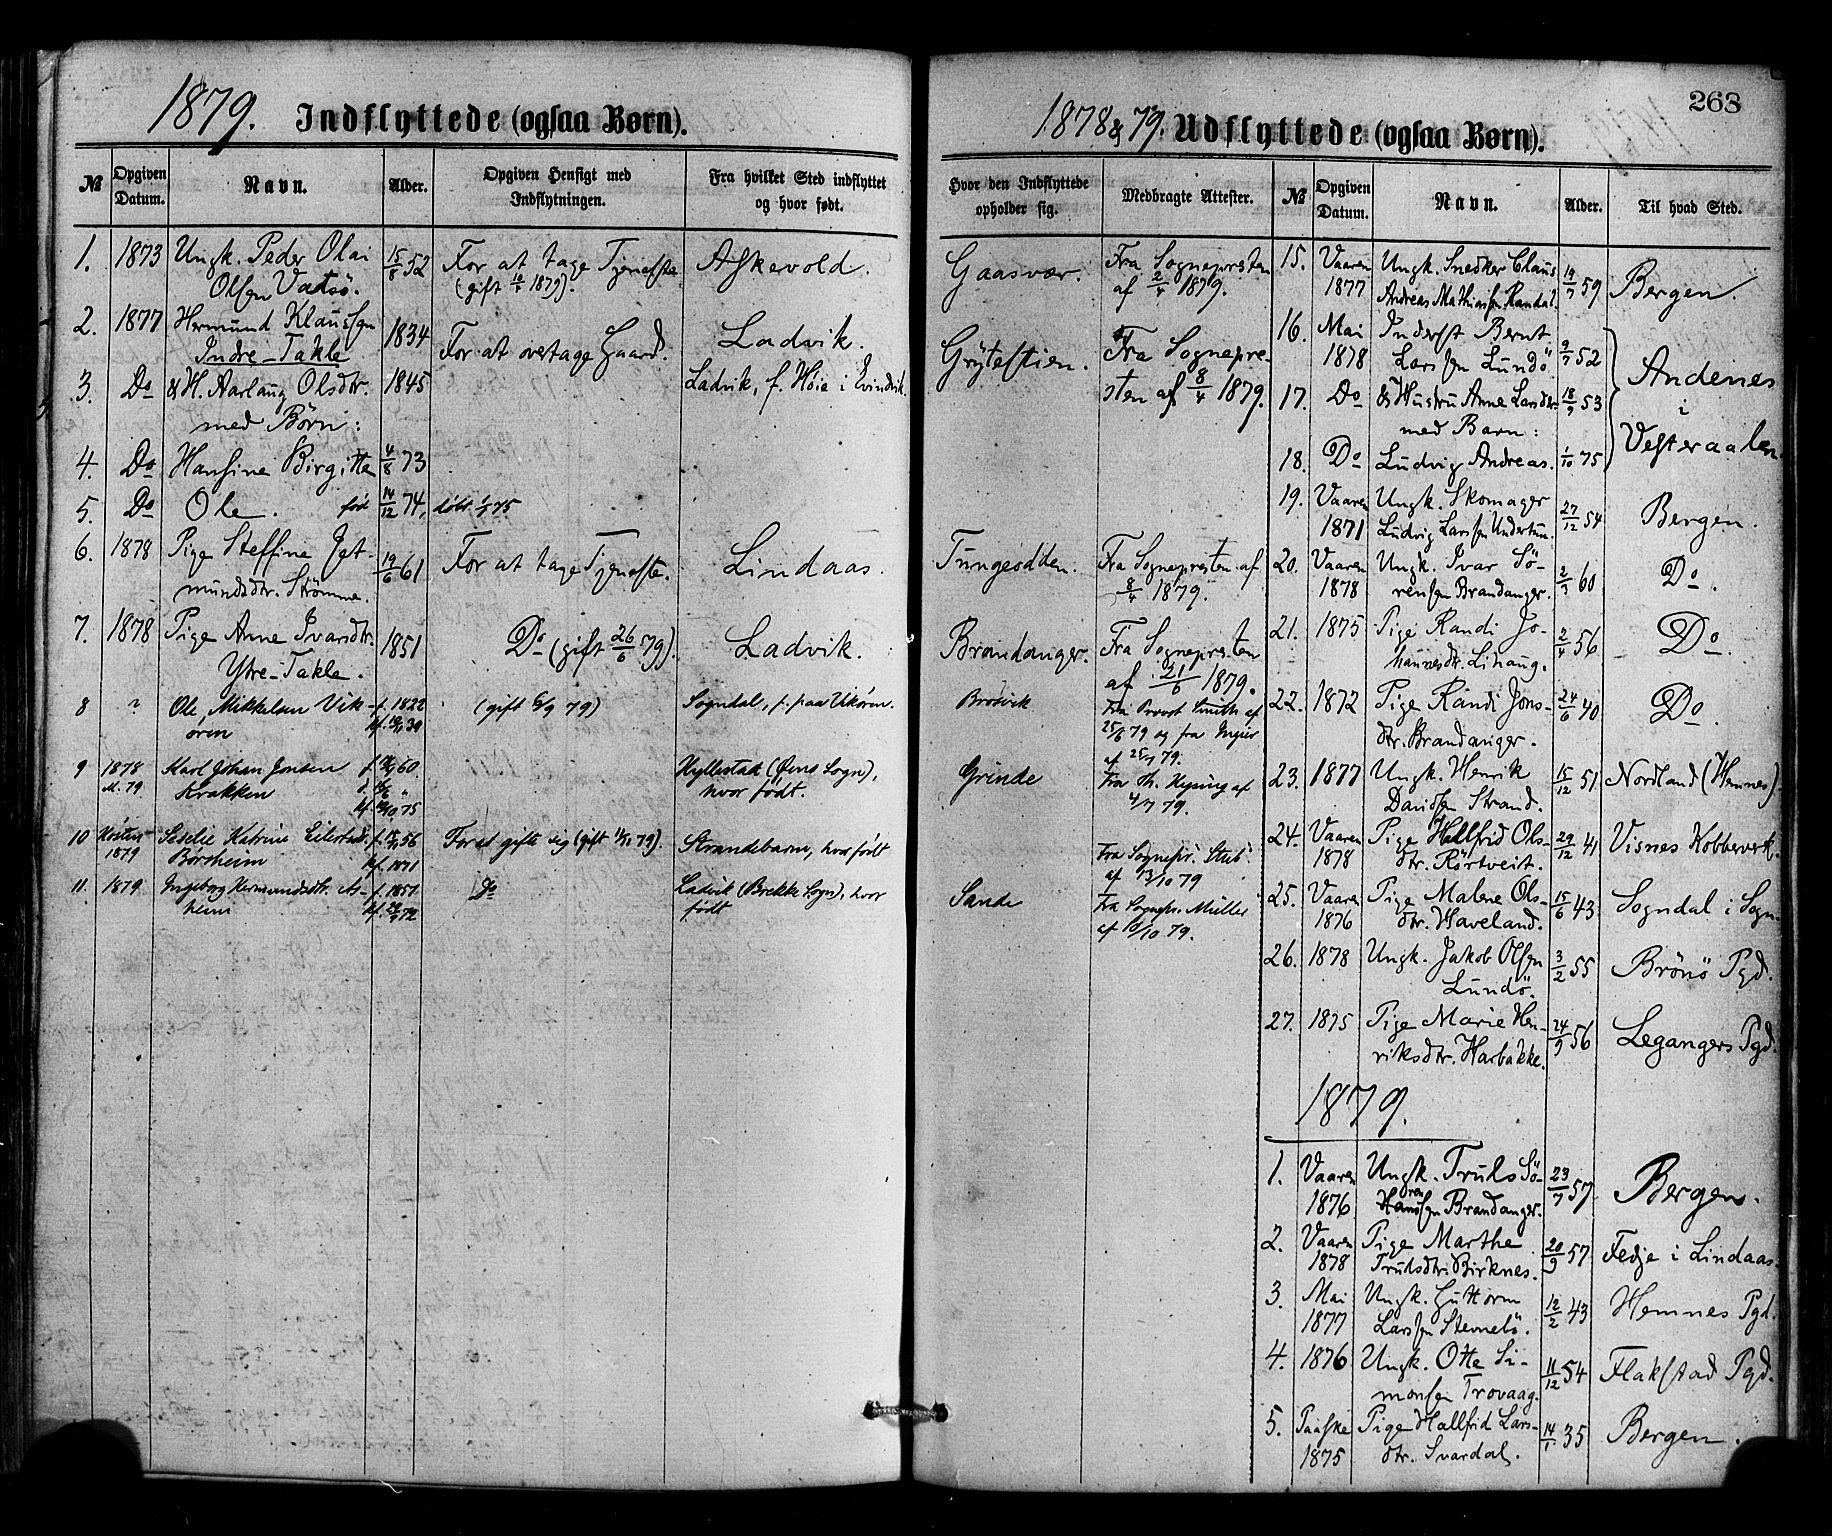 1879. Indflyttede (ogsaa Børn).
№ Opgiven Datum. Navn. Alder. Opgiven Hensigt med Indflytningen. Fra hvilket Sted indflyttet og hvor født. Hvor den Indflyttede opholder sig. Medbragte Attester.
1. 1873 Ungk. Peder Olai 15/8 52 For at tage Tjeneste Askevold. Gaasvær. Fra Sognepresten
Olsen Vatsö. (gift 14/4 1879) af 2/4 1879.
2. 1877 Hermund Klaussen 1834 For at overtage Gaard. Ladvik. Grytestien. Fra Sognepre-
Indre-Takle
3. Do & H. Aarlaug Olsdtr. 1845 Ladvik, f. Høie i Evindvik. sten af 8/4 1879.
med Börn:
4. Do Hansine Birgitte 4/8 73
5. Do Ole. föd 14/12 74, döbt 1/1 75
6. 1878 Pige Steffine Jet- 19/6 61 For at tage Tjeneste. Lindaas. Tungeodden. Fra Sognepresten af
mundsdtr. Strömme. 8/4 1879.
7. 1878 Pige Anne Ivarsdtr. 1851 Do (gift 26/6 79). Ladvik. Brandanger. Fra Sognepresten
Ytre-Takle. af 21/6 1879.
8 ? Ole Mikkelsen Vik- f. 1822 (gift 6/9 79) Sogndal, f. paa Vikören. Brosvik Fra Provst Smith af
ören 25/6 79 og fra
af 25/7 79.
9 1878 Karl Johan Jonsen Hyllestad (Øens Sogn), Grinde Fra Th.
M. 79 Krakken hvor født. 4/7 79.
10 Høsten Seselie Katrine Eilertsd. For at gifte sig (gift 1/11 79). Strandebarm, hvor født Fra Sognepr. Stub
1879 Børsheim kf. 1871 af 13/10 79
11. 1879 Ingeborg Hermundsdtr. As- f. 1857 Do Ladvik (Brekke Sogn), hvor Sande Fra Sognepr. Müller
heim født af 10/10 79.
268
1878 & 79. Udflyttede (ogsaa Børn).
№ Opgiven Datum. Navn. Alder. Til hvad Sted.
15. Vaaren Ungk. Snedker Claus 19/7 59 Bergen.
1877 Andreas Mathiassen Randal.
16. Mai Inderst Bernt 9/7 52 Andenes
1878 Larssen Lundö
17. Do & Hustru Anne Larsdtr. 18/9 53 i
med Barn:
18. Do Ludvig Andreas. 1/10 75 Vesteraalen
19. Vaaren Ungk. Skomager 27/12 54 Bergen.
1871 Ludvig Larssen Undertun.
20. Vaaren Ungk. Ivar Sö- 2/3 60 Do.
1878 rensen Brandanger.
21. 1875 Pige Randi Jo- 2/4 56 Do.
hannesdtr. Lihaug.
22. 1872 Pige Randi Jons- 24/6 40 Do.
dtr. Brandanger.
23. 1877 Ungk. Henrik 15/12 51 Nordland (Hemnes).
Davidsen Strand.
24. Vaaren Pige Hallfrid Ols- 29/12 41 Visnes Kobberverk.
1878 dtr. Rörtveit.
25. Vaaren Pige Malene Ols- 15/6 43 Sogndal i Sogn.
1876 dtr. Haveland.
26. 1878 Ungk. Jakob Olsen 3/2 55 Brönö Pgd.
Lundö.
27. 1875 Pige Marie Hen- 24/9 56 Legangers Pgd.
riksdtr. Harbakke.
1879.
1. Vaaren Ungk. Truls Sö- 23/7 57 Bergen.
ren
1876 Hanssen Brandanger.
2. Vaaren Pige Marthe 20/9 57 Fedje i Lindaas.
1878 Trulsdtr. Birknes.
3. Mai Ungk. Guttorm 12/2 43 Hemnes Pgd.
1877 Larssen Stevnebö.
4. 1876 Ungk. Otte Si- 11/12 54 Flakstad Pgd.
monsen Trovaag.
5. Paaske Pige Hallfrid Lars- 14/1 35 Bergen.
1875 dtr. Svardal.